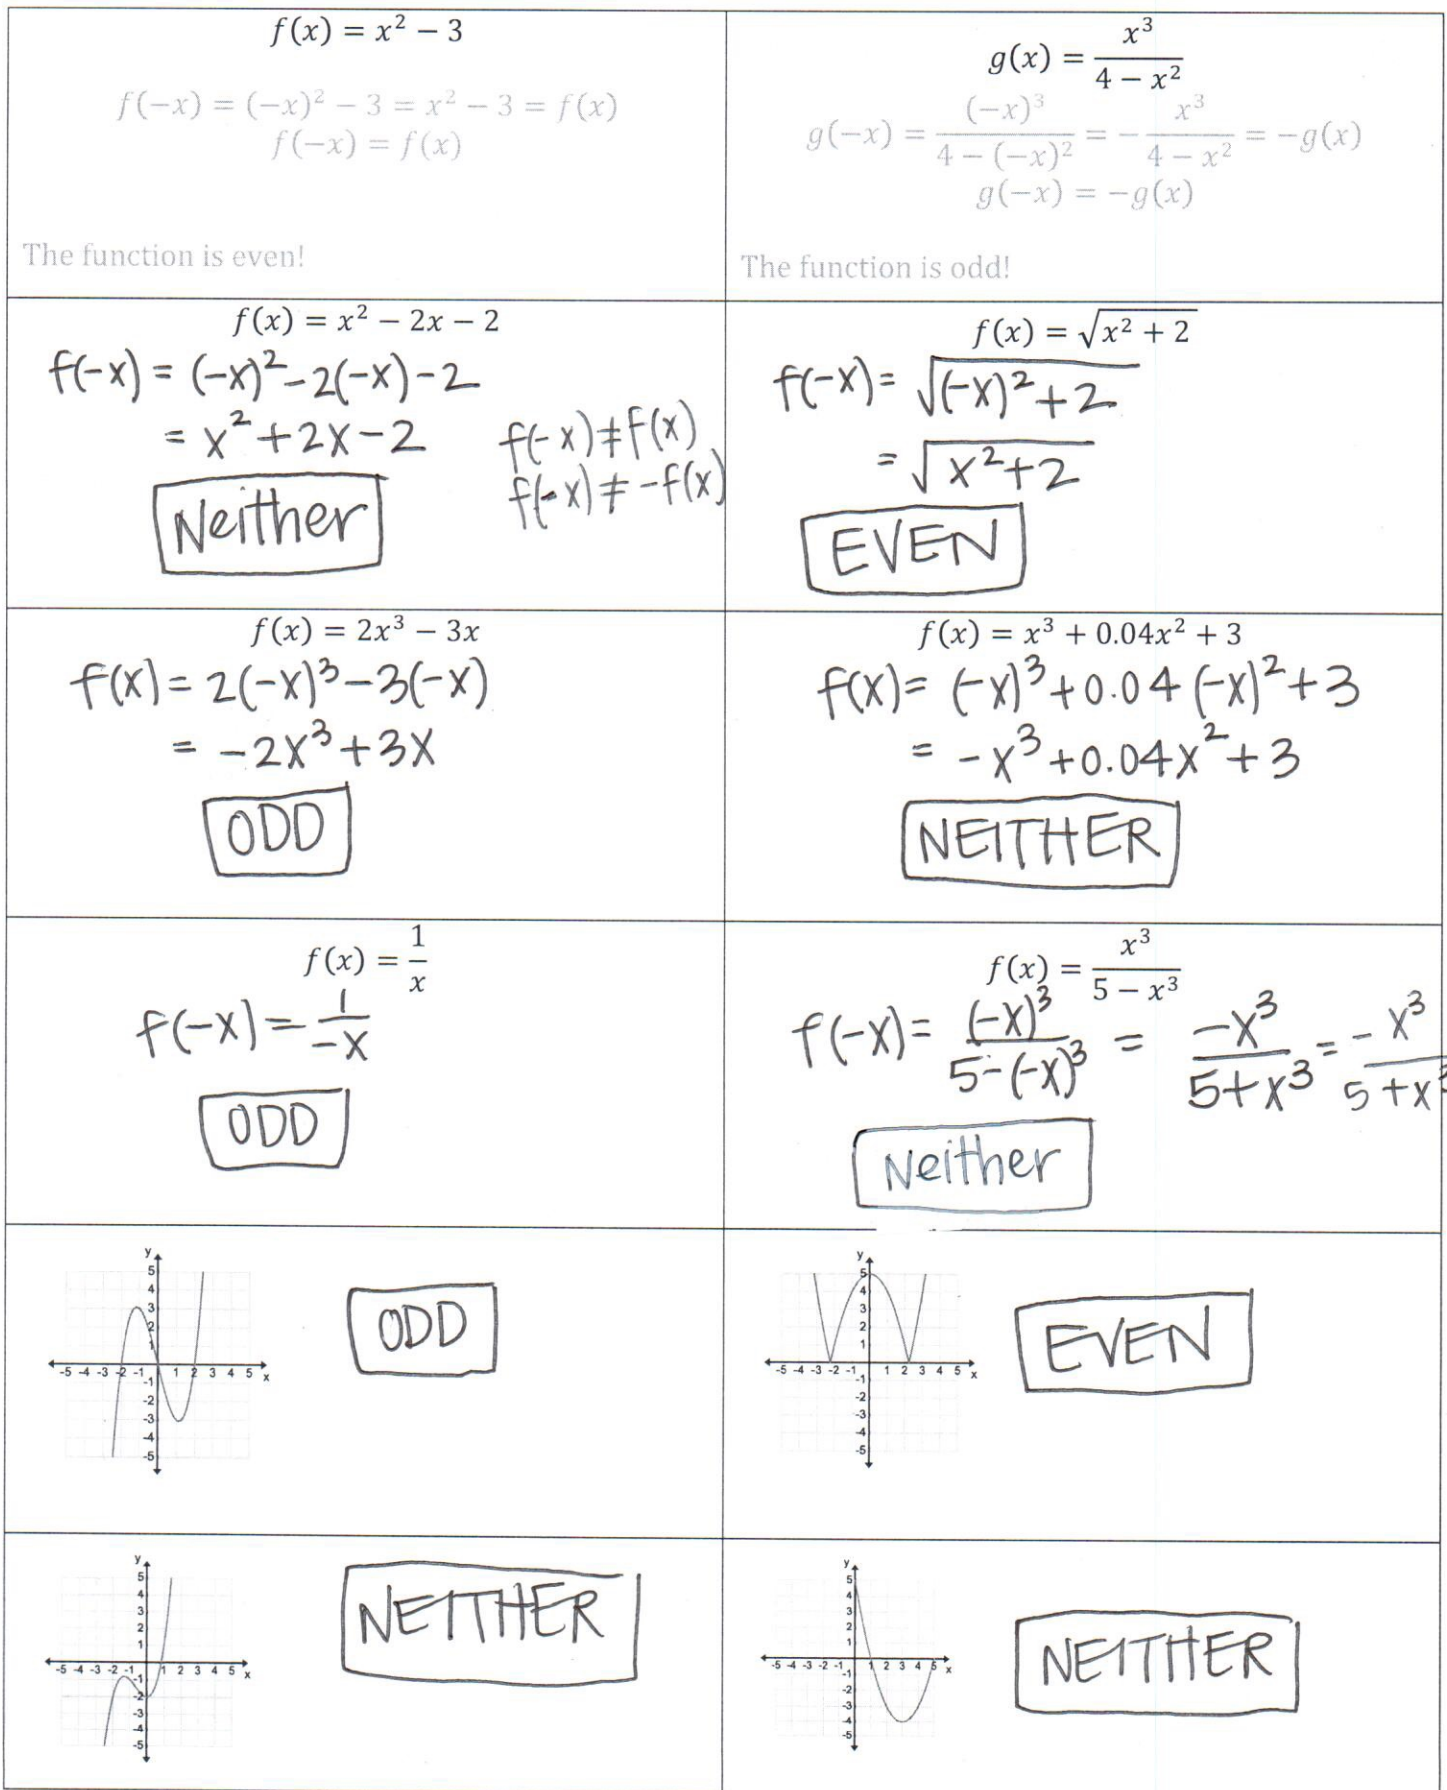 f(x) = x² − 3
f(−x) = (−x)² − 3 = x² − 3 = f(x)
f(−x) = f(x)
The function is even!
g(x) = x³/(4 − x²)
g(−x) = (−x)³/(4 − (−x)²) = − x³/(4 − x²) = −g(x)
g(−x) = −g(x)
The function is odd!
f(x) = x² − 2x − 2
f(-x) = (-x)² - 2(-x) - 2
= x² + 2x - 2
f(-x) ≠ f(x)
f(-x) ≠ -f(x)
Neither
f(x) = √(x² + 2)
f(-x) = √((-x)² + 2)
= √(x² + 2)
EVEN
f(x) = 2x³ − 3x
f(x) = 2(-x)³ - 3(-x)
= -2x³ + 3x
ODD
f(x) = x³ + 0.04x² + 3
f(x) = (-x)³ + 0.04 (-x)² + 3
= -x³ + 0.04x² + 3
NEITHER
f(x) = 1/x
f(-x) = 1/-x
ODD
f(x) = x³/(5 − x³)
f(-x) = (-x)³/(5 - (-x)³) = -x³/(5 + x³) = - x³/(5 + x³)
Neither
y
5
4
3
2
1
-5 -4 -3 -2 -1 1 2 3 4 5 x
-1
-2
-3
-4
-5
ODD
y
5
4
3
2
1
-5 -4 -3 -2 -1 1 2 3 4 5 x
-1
-2
-3
-4
-5
EVEN
y
5
4
3
2
1
-5 -4 -3 -2 -1 1 2 3 4 5 x
-1
-2
-3
-4
-5
NEITHER
y
5
4
3
2
1
-5 -4 -3 -2 -1 1 2 3 4 5 x
-1
-2
-3
-4
-5
NEITHER